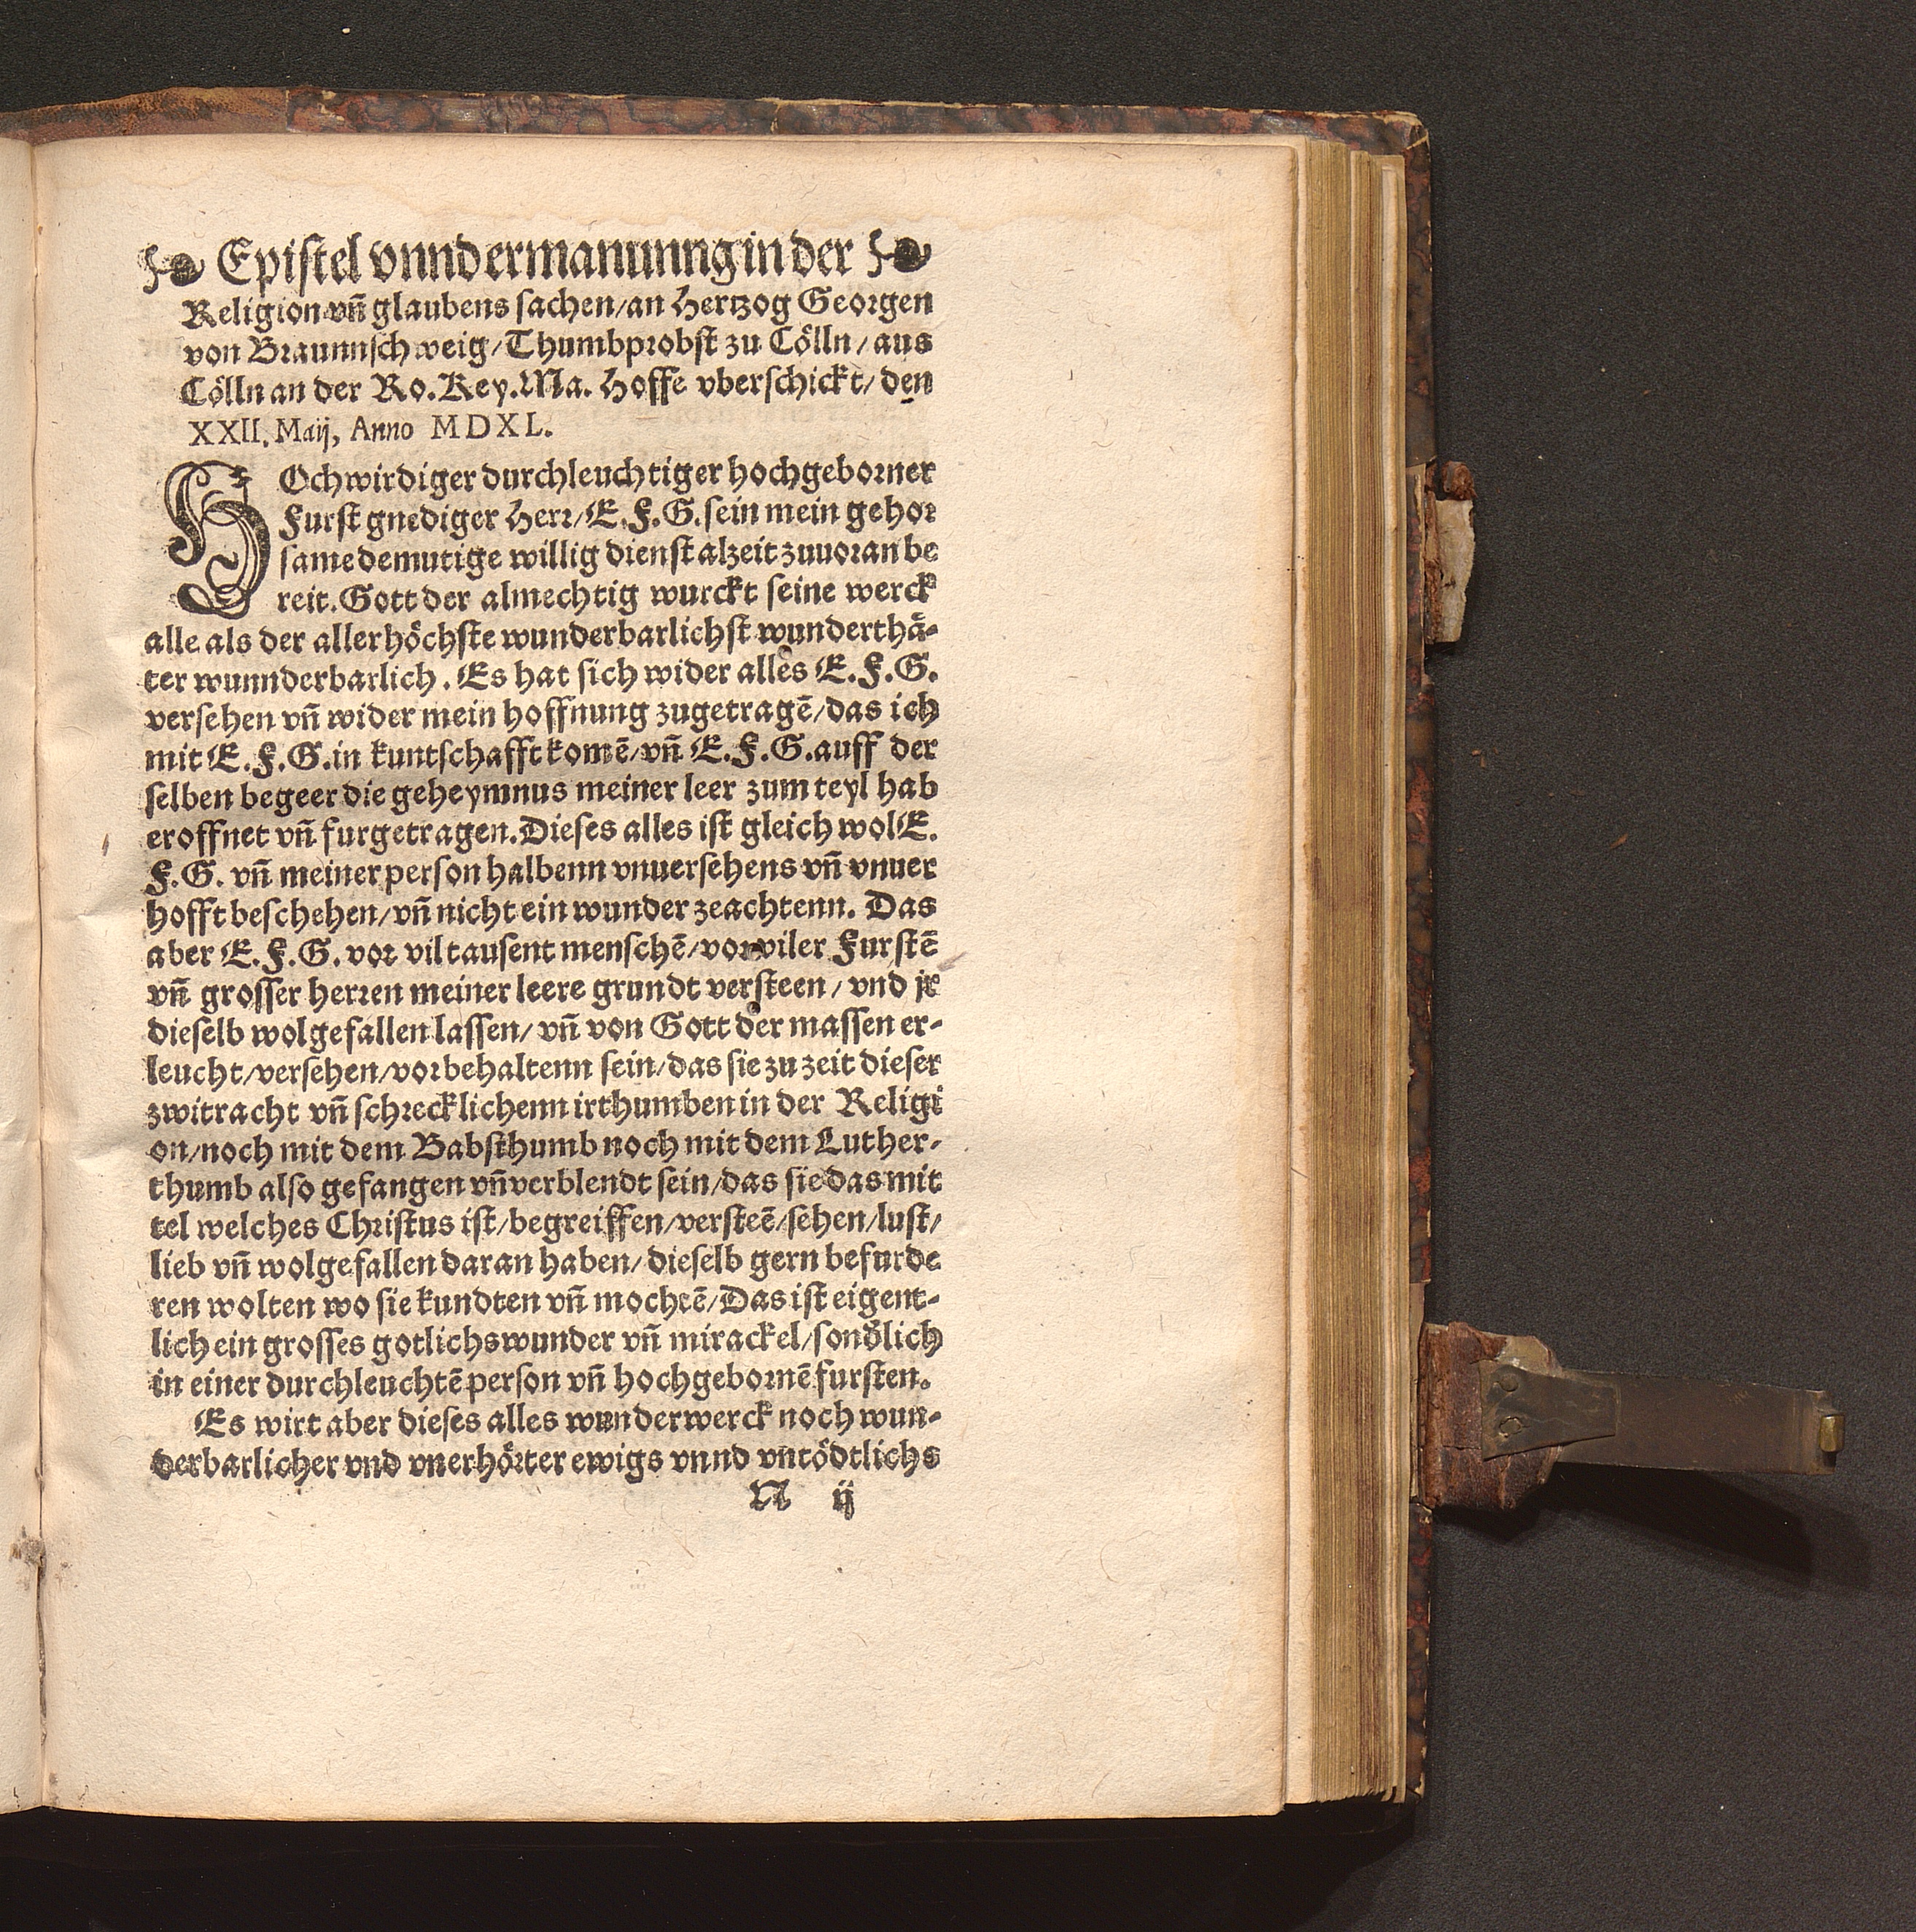 Epistel vnnd ermanunng in der
Religion vñ glaubens sachen/an Hertzog Georgen
von Braunnschweig/Thumbprobst zu Cölln/aus
Cölln an der Ro.Key.Ma. Hoffe vberschickt/den
XXII. Maij, Anno MDXL.
HOchwirdiger durchleuchtiger hochgeborner
Furst gnediger Herr/E.F.G.sein mein gehor
same demutige willig dienst alzeit zuuoran be
reit.Gott der almechtig wurckt seine werck
alle als der allerhöchste wunderbarlichst wunderthä-
ter wunnderbarlich. Es hat sich wider alles E.F.G.
versehen vñ wider mein hoffnung zugetragẽ/das ich
mit E.F.G.in kuntschafft komẽ/vñ E.F.G.auff der
selben begeer die geheymnus meiner leer zum teyl hab
eroffnet vñ furgetragen.Dieses alles ist gleich wol E.
F.G. vñ meiner person halbenn vnuersehens vñ vnuer
hofft beschehen/vñ nicht ein wunder zeachtenn. Das
aber E.F.G.vor vil tausent menschẽ/vor viler Furstẽ
vñ grosser herren meiner leere grundt versteen/vnd jr
dieselb wolgefallen lassen/vñ von Gott der massen er-
leucht/versehen/vorbehaltenn sein/das sie zu zeit dieser
zwitracht vñ schrecklichenn irthumben in der Religi
on/noch mit dem Babsthumb noch mit dem Luther-
thumb also gefangen vñ verblendt sein/das sie das mit
tel welches Christus ist/begreiffen/versteẽ/sehen/lust/
lieb vñ wolgefallen daran haben/dieselb gern befurde
ren wolten wo sie kundten vñ mochtẽ/Das ist eigent-
lich ein grosses gotlichs wunder vñ mirackel/sond̃lich
in einer durchleuchtẽ person vñ hochgebornẽ fursten.
Es wirt aber dieses alles wunderwerck noch wun-
derbarlicher vnd vnerhörter ewigs vnnd vntödtlichs
N ij